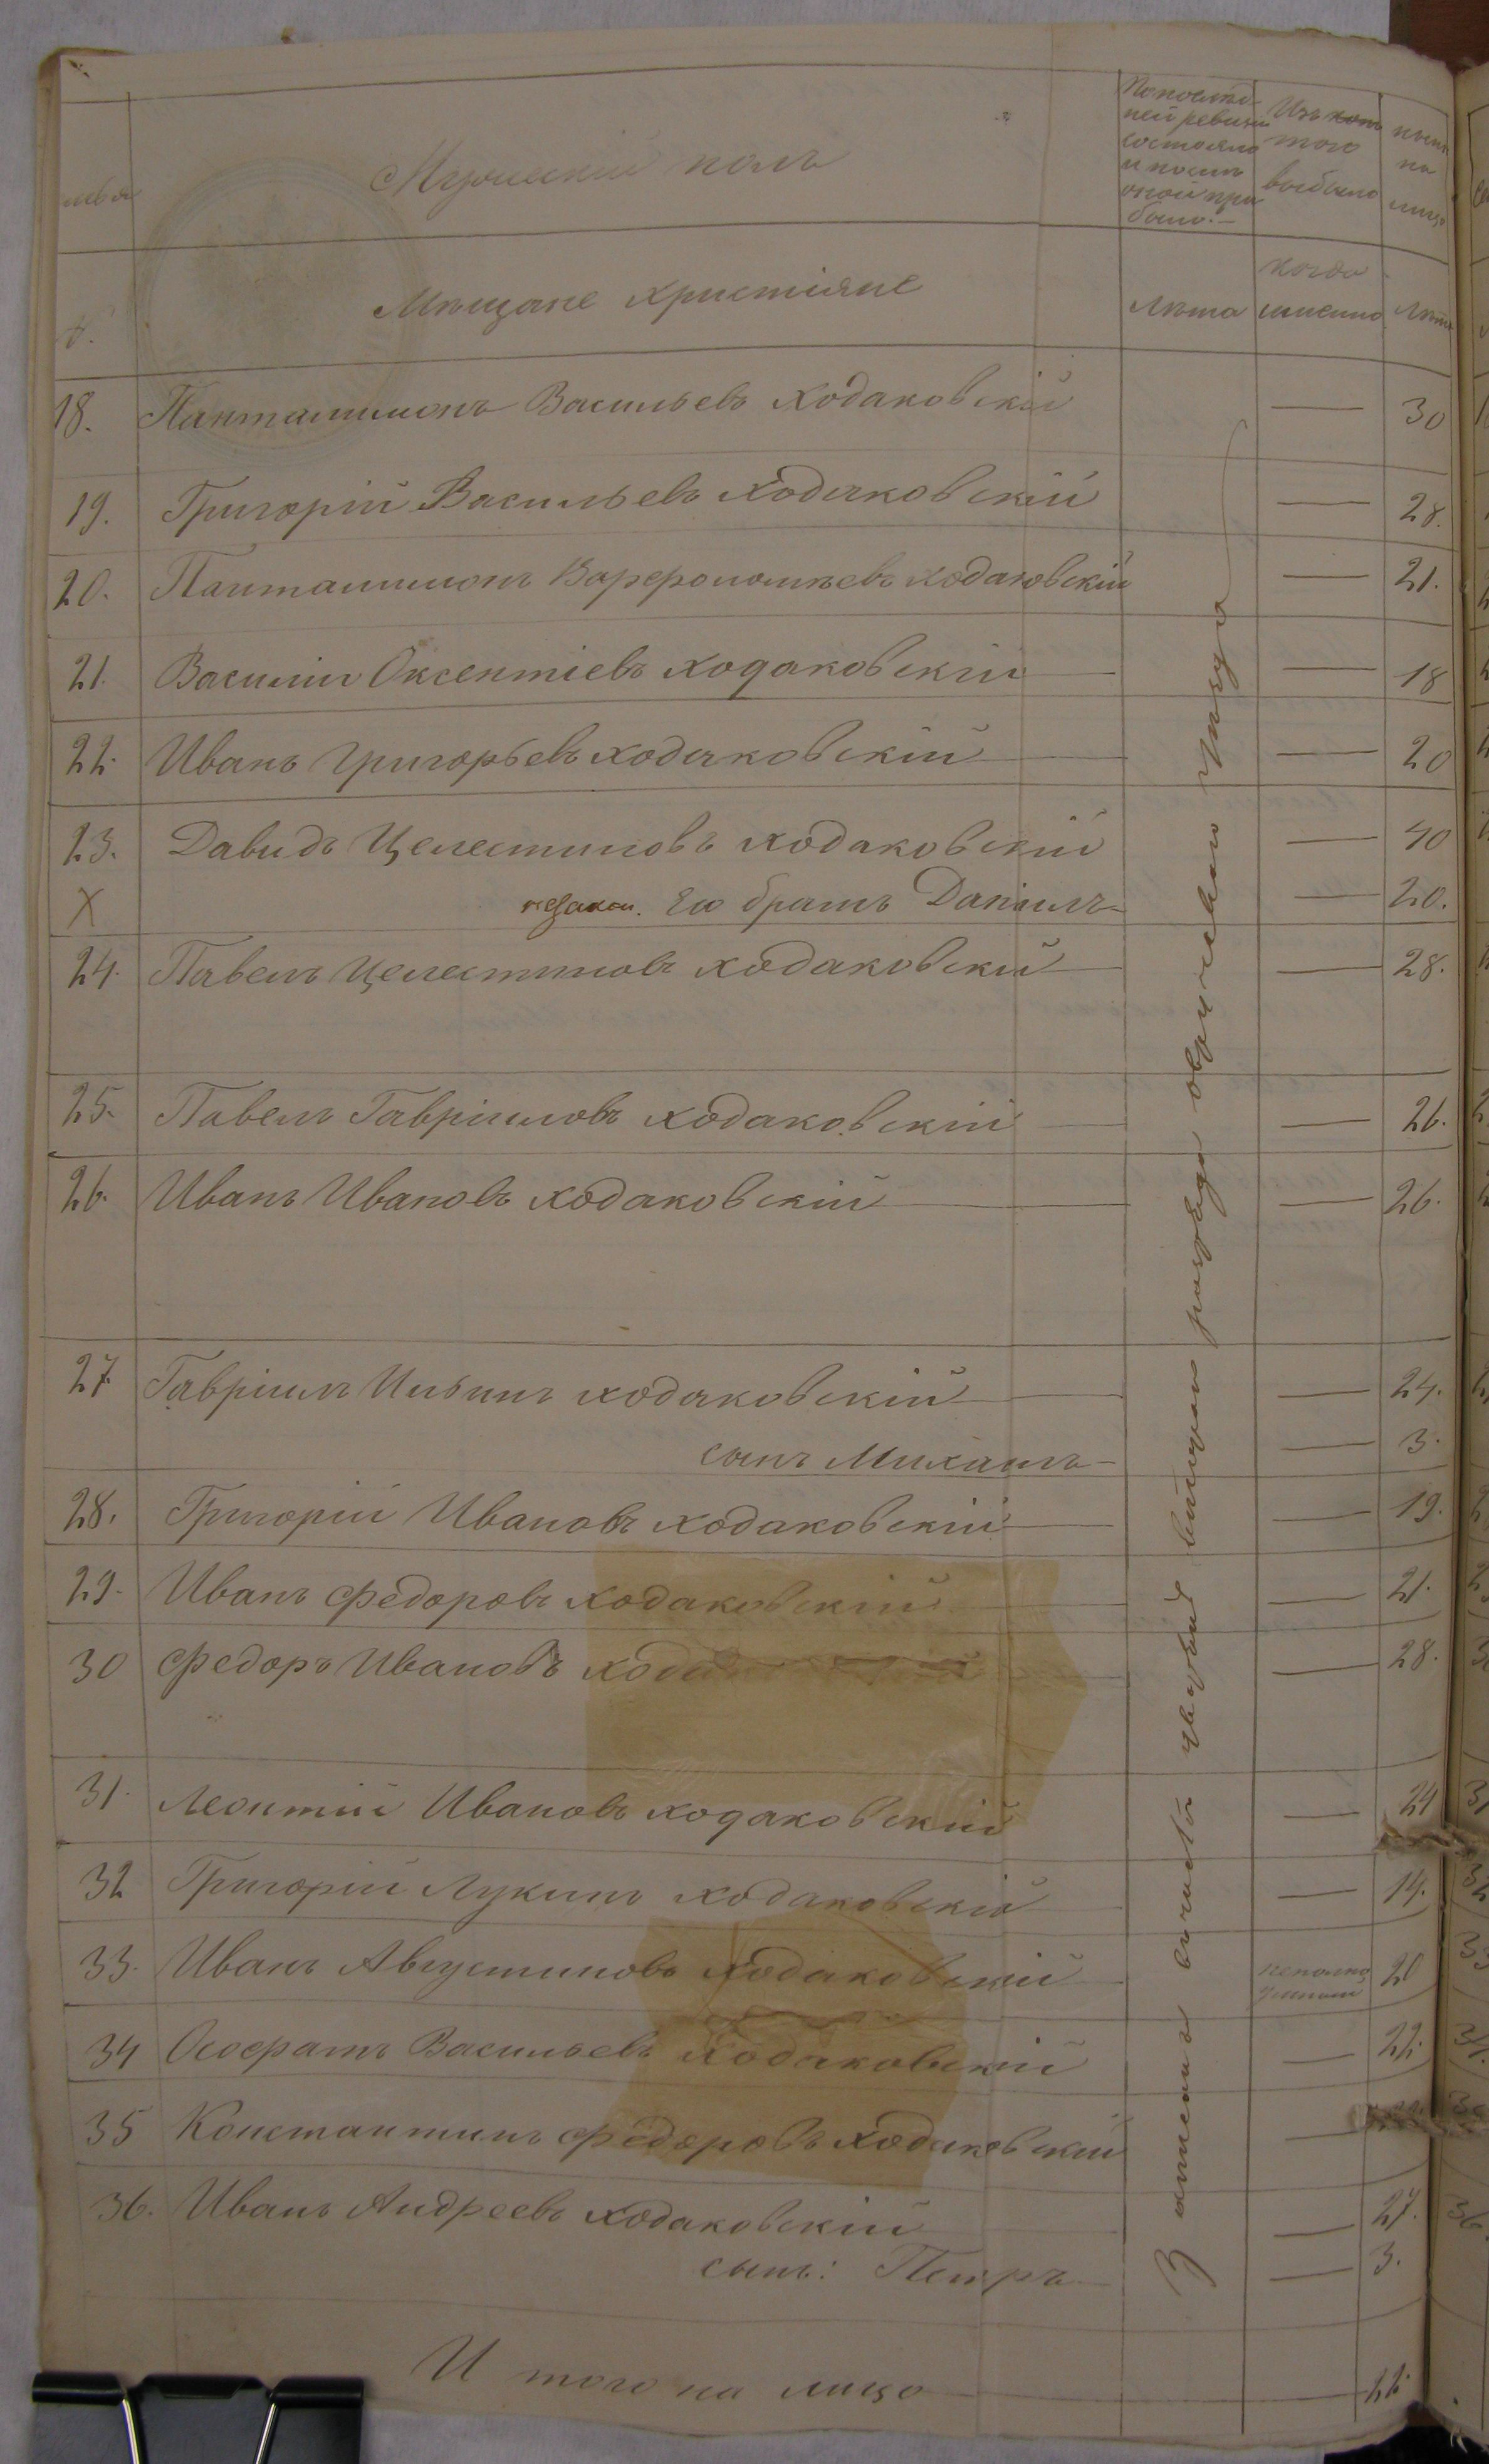 Мужескій полъ
По послѣд-
ней ревизіи
состояло
и послѣ
оной при
было.
Изъ
того
выбыло
нынѣ
на
лицо
№.
Мѣщане христіяне
Лѣта
когда
именно
Лѣта
18. Панталимонъ Васильевъ Ходаковскій — 30
19. Григорій Васильевъ Ходаковскій — 28.
20. Панталимонъ Варфоломѣевъ Ходаковскій — 21.
21. Василій Оксентіевъ Ходаковскій — 18
22. Иванъ Григорьевъ Ходаковскій — 20
23. Давидъ Целестиновъ Ходаковскій — 40
X незакон. Его братъ Даніилъ — 20.
24. Павелъ Целестиновъ Ходаковскій — 28.
25. Павелъ Гавріиловъ Ходаковскій — 26.
26. Иванъ Ивановъ Ходаковскій — 26.
27. Гавріилъ Ильинъ Ходаковскій — 24.
сынъ Михаилъ — 3.
28. Григорій Ивановъ Ходаковскій — 19.
29. Иванъ Федоровъ Ходаковскій — 21.
30 Федоръ Ивановъ — 28.
31. Леонтій Ивановъ Ходаковскій — 24
32 Григорій Лукинъ Ходаковскій — 14.
33. Иванъ Августиновъ Ходаковскій 20
34 Осафатъ Васильевъ Ходаковскій — 22.
35 Константинъ Федоровъ Ходаковскій —
36. Иванъ Андреевъ Ходаковскій — 27.
сынъ: Петръ — 3.
И того на лицо 22.